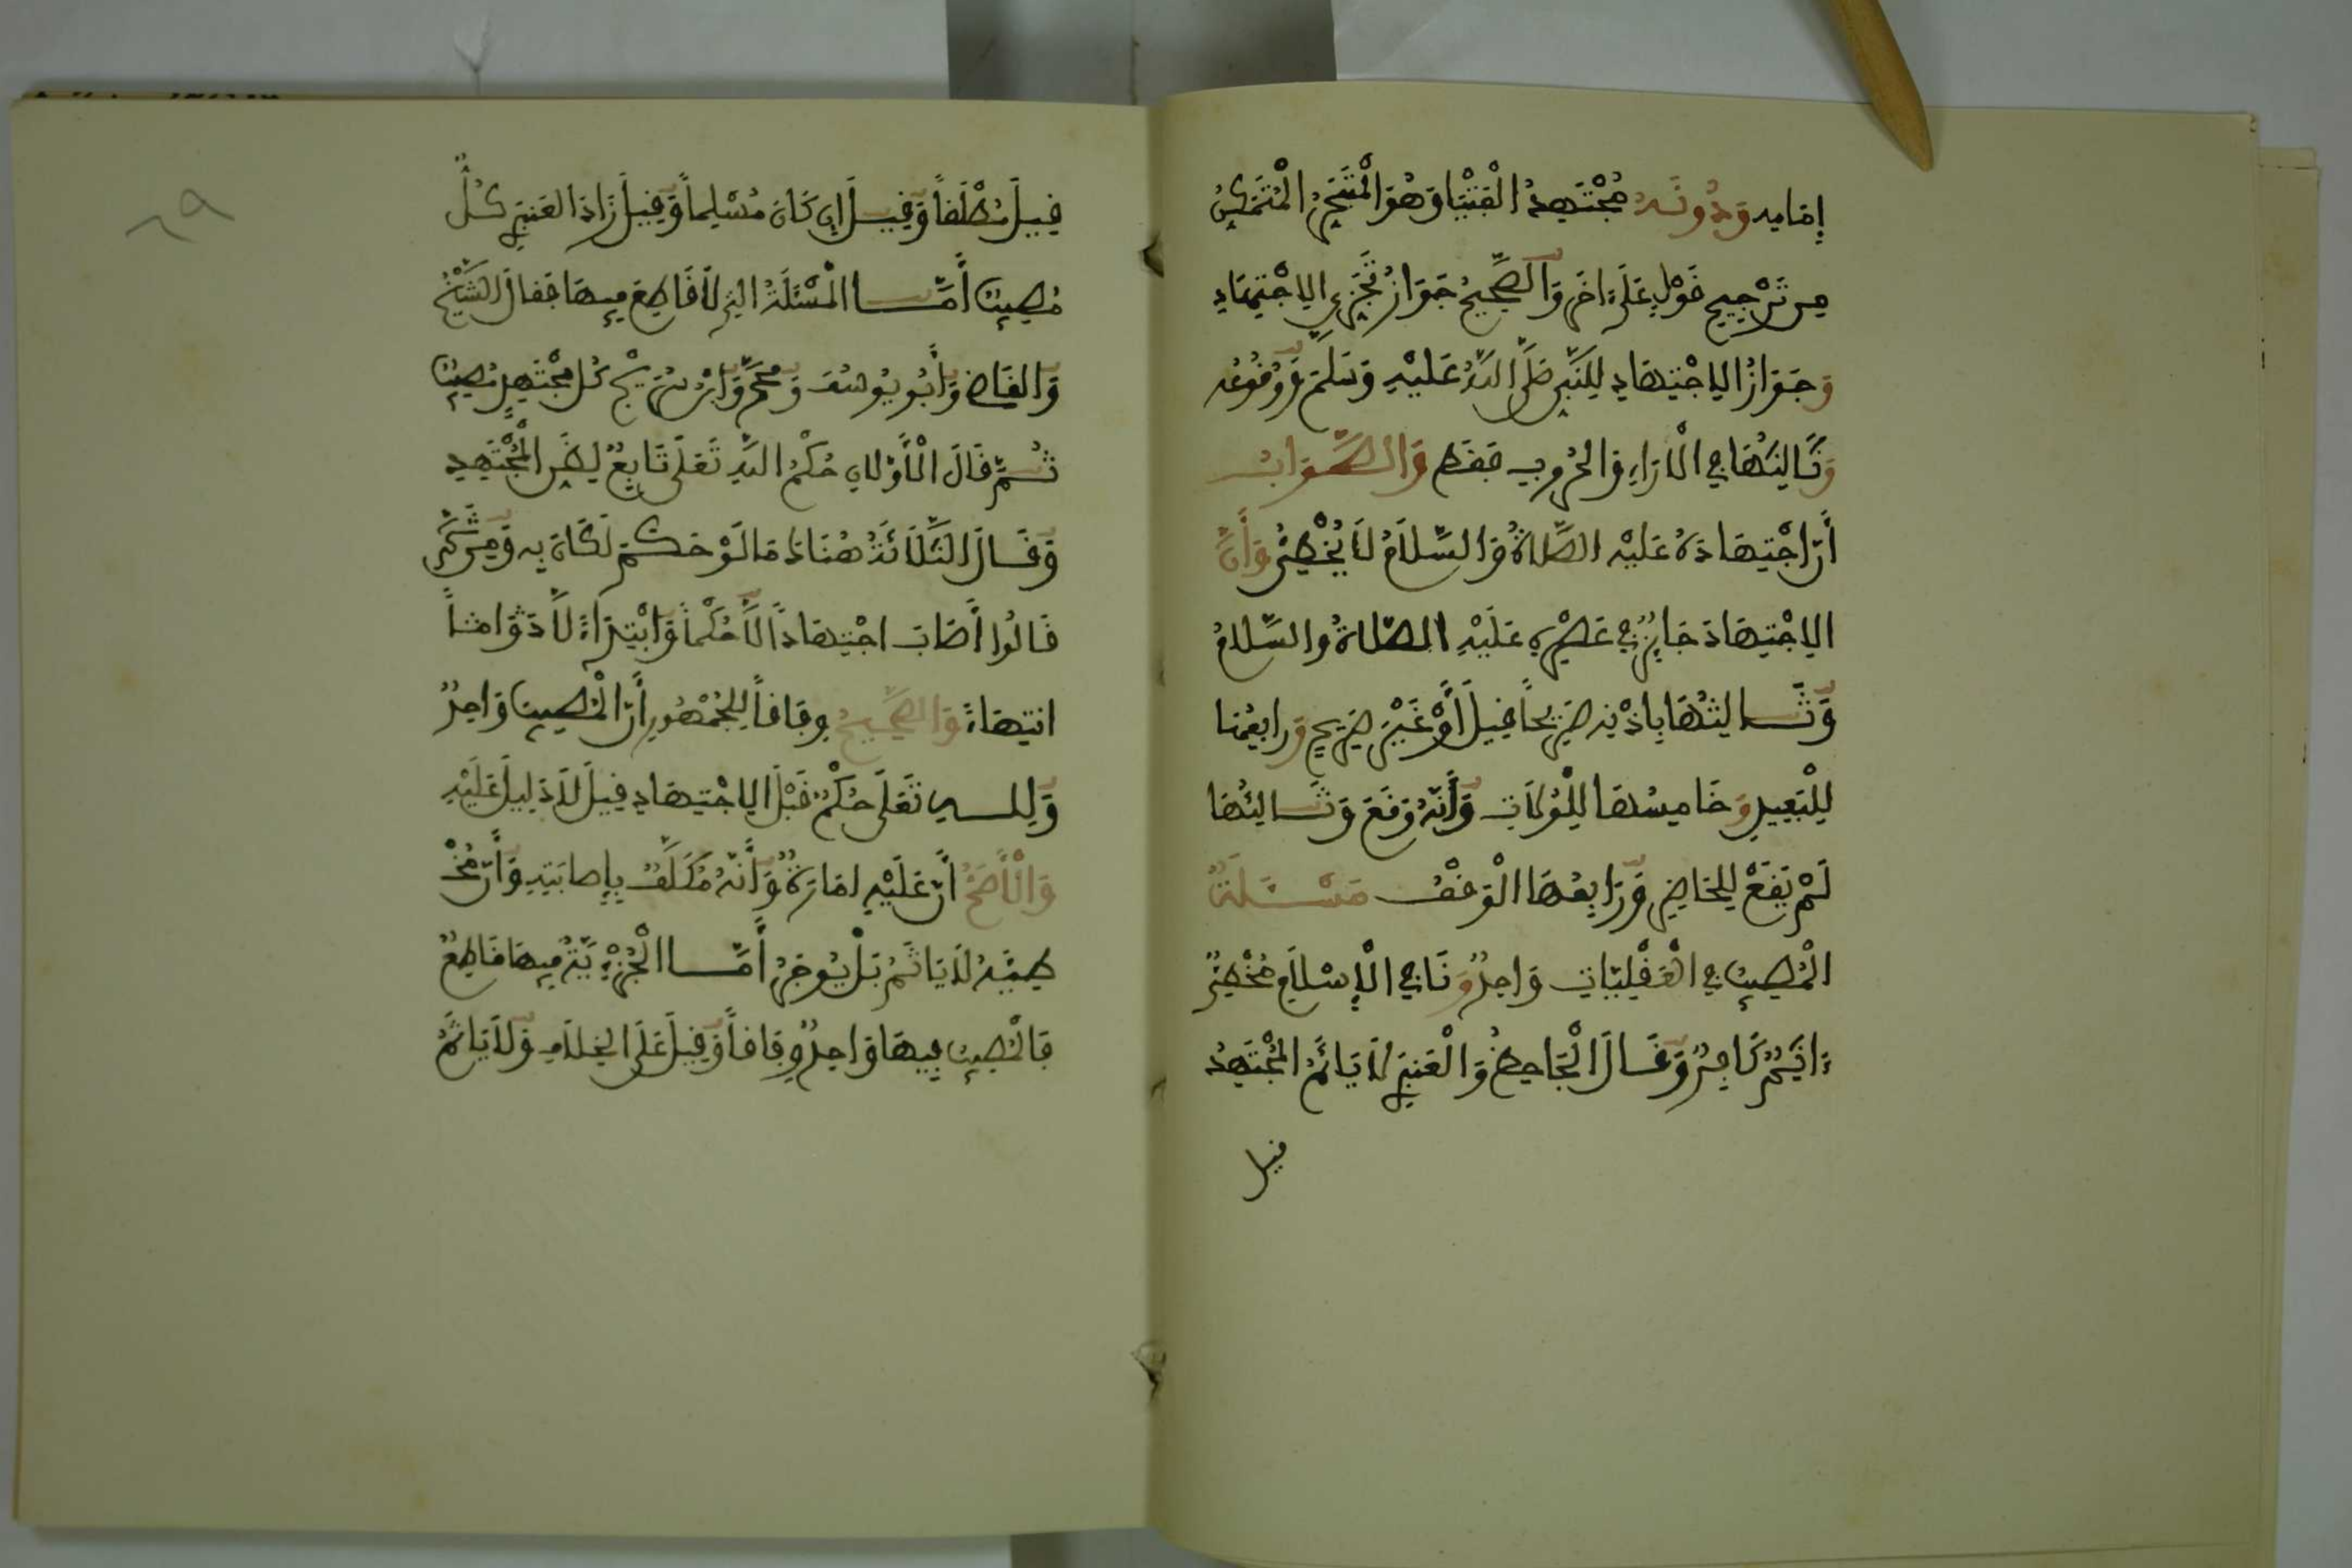 إِمَامِهِ وَدُونَهُ مُجْتَهِدُ الْفُتْيَا وَهُوَ الْمُتَبَحِّرُ الْمُتَمَكِّنُ
مِن تَرْجِيحِ قَوْلٍ عَلَى ءَاخَرَ وَالصَّحِيحُ جَوَازُ تَجَزِّي الِاجْتِهَادِ
وَجَوَازُ الِاجْتِهَادِ لِلنَّبِيِّ صَلَّى اللَّهُ عَلَيْهِ وَسَلَّمَ وَوُقُوعُه
وَثَالِثُهَا فِي الْآرَاءِ وَالْحُرُوبِ فَقَط وَالصَّوَابُ
أَنَّ اجْتِهَادَهُ عَلَيْهِ الصَّلَاةُ وَالسَّلَامُ لَا يُخْطِئُ وَأَنَّ
الِاجْتِهَادَ جَائِزٌ فِي عَصْرِهِ عَلَيْهِ الصَّلَاةُ وَالسَّلَامُ
وَثَالِثُهَا بِإِذْنِهِ صَرِيحاً قِيلَ أَوْ غَيْرِ صَرِيحٍ وَرَابِعُهَا
لِلْبَعِيدِ وَخَامِسُهَا لِلْوُلَاةِ وَأَنَّهُ وَقَعَ وَثَالِثُهَا
لَمْ يَقَعْ لِلْحَاضِرِ وَرَابِعُهَا الْوَقْفُ مَسْئَلَةٌ
الْمُصِيبُ فِي الْعَقْلِيَّاتِ وَاحِدٌ وَنَافِي الْإِسْلَامِ مُخْطِئٌ
ءَاثِمٌ كَافِرٌ وَقَالَ الْجَاحِظُ وَالْعَنبَرِي لَا يَاثَمُ الْمُجْتَهِدُ
قيل
٦٩
قِيلَ مُطْلَقاً وَقِيلَ إِن كَانَ مُسْلِماً وَقِيلَ زَادَ الْعَنبَرِي كُلٌّ
مُصِيبٌ أَمَّا الْمَسْئَلَةُ الَّتِي لَا قَاطِعَ فِيهَا فَقَالَ الشَّيْخُ
وَالْقَاضِي وَأَبُو يُوسُفَ وَمُحَمَّدٌ وَابْنُ سُرَيْجٍ كُلُّ مُجْتَهِدٍ مُصِيبٌ
ثُمَّ قَالَ الْأَوَّلَانِ حُكْمُ اللَّهِ تَعَلَى تَابِعٌ لِظَنِّ الْمُجْتَهِدِ
وَقَالَ الثَّلَاثَةُ هُنَاكَ مَا لَوْ حَكَمَ لَكَانَ بِهِ وَمِن ثَمَّ
قَالُوا أَصَابَ اجْتِهَاداً لَا حُكْماً وَابْتِدَاءً لَا
انْتِهَاءً وَالصَّحِيحُ وِفَاقاً لِلْجُمْهُورِ أَنَّ الْمُصِيبَ وَاحِدٌ
وَلِلَّهِ تَعَلَى حُكْمٌ قَبْلَ الِاجْتِهَادِ قِيلَ لَا دَلِيلَ عَلَيْهِ
وَالْأَصَحُّ أَنَّ عَلَيْهِ امَارَةً وَأَنَّهُ مُكَلَّفٌ بِإِصَابَتِهِ وَأَنَّ مُخْ
طِئَهُ لَا يَاثَمُ بَلْ يُوجَرُ أَمَّا الْجُزْئِيَّةُ فِيهَا قَاطِعٌ
فَالْمُصِيبُ فِيهَا وَاحِدٌ وِفَاقاً وَقِيلَ عَلَى الْخِلَافِ وَلَا يَاثَمُ